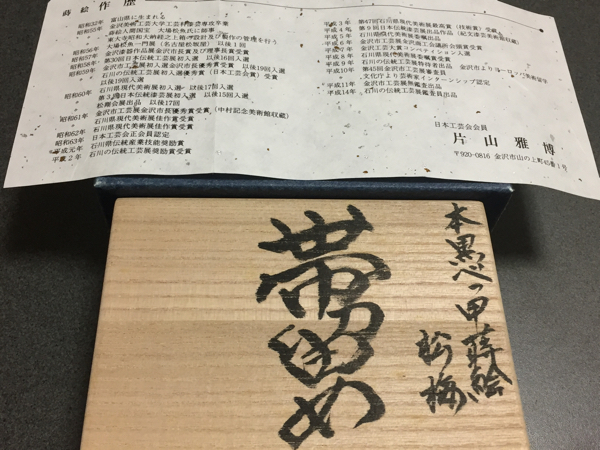 蒔絵作歴
昭和32年 富山県に生まれる
昭和55年 金沢美術工芸大学工芸科漆芸専攻卒業
蒔絵人間国宝 大場松魚氏に師事
東大寺昭和大納経之上箱の設計及び製作の管理を行う
大場松魚一門展(名古屋松坂屋) 以後1回
昭和56年 金沢漆器作品展金沢市長賞及び理事長賞受賞
昭和57年 第30回日本伝統工芸展初入選 以後16回入選
昭和58年 金沢市工芸展初入選金沢市長優秀賞受賞 以後19回入選
昭和59年 石川の伝統工芸展初入選優秀賞(日本工芸会賞)受賞
以後19回入選
石川県現代美術展初入選 以後17回入選
昭和60年 第3回日本伝統漆芸展初入選 以後15回入選
松舞会展出品 以後17回
金沢市工芸展金沢市長優秀賞受賞(中村記念美術館収蔵)
昭和61年 石川県現代美術展佳作賞受賞
昭和62年 石川県現代美術展佳作賞受賞
昭和63年 日本工芸会正会員認定
平成元年 石川県伝統産業技能奨励賞
平成2年 石川の伝統工芸展奨励賞受賞
平成3年 第47回石川県現代美術展最高賞(技術賞)受賞
平成4年 第9回日本伝統漆芸展出品作品
平成5年 石川県現代美術展委嘱出品
平成6年 金沢市工芸展金沢商工会議所会頭賞受賞
平成7年 金沢工芸大賞コンペティション入選
平成8年 石川県現代美術展委嘱賞受賞
平成9年 石川の伝統工芸展待待者出品
平成10年 第45回金沢市工芸展審査員
文化庁より芸術家インターンシップ認定
平成11年 金沢市工芸展審査員出品
平成14年 石川の伝統工芸展鑑査員出品
日本工芸会会員
片山雅博
〒920-0816 金沢市山の上町45番1号
本黒べっ甲蒔絵
松梅
帯留め